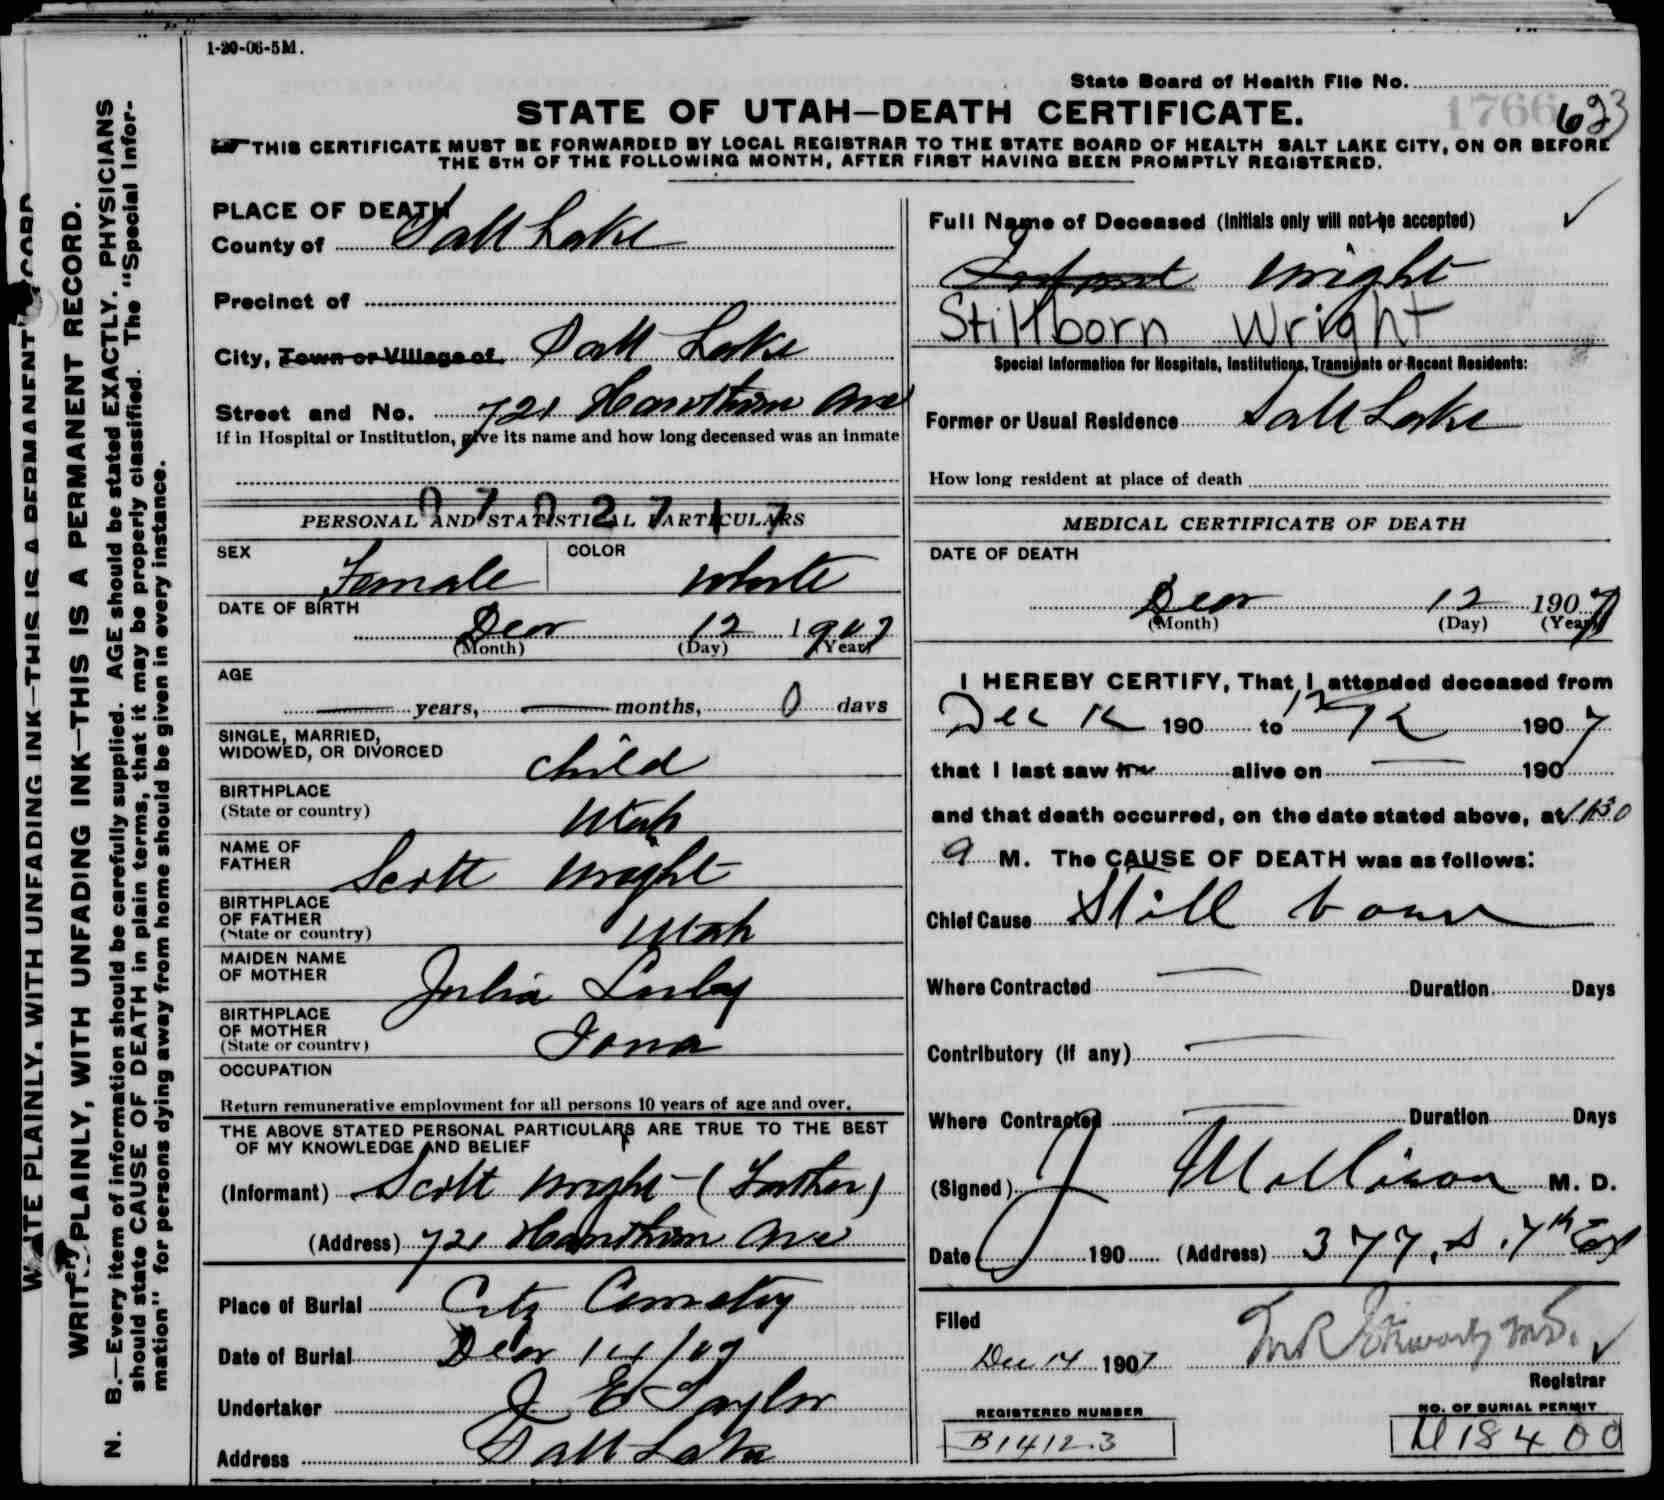 1-20-06-5M.
State Board of Health File No.
1766 623
STATE OF UTAH—DEATH CERTIFICATE.
THIS CERTIFICATE MUST BE FORWARDED BY LOCAL REGISTRAR TO THE STATE BOARD OF HEALTH SALT LAKE CITY, ON OR BEFORE
THE 5TH OF THE FOLLOWING MONTH, AFTER FIRST HAVING BEEN PROMPTLY REGISTERED.
WRITE PLAINLY, WITH UNFADING INK—THIS IS A PERMANENT RECORD.
WRITE PLAINLY, WITH UNFADING INK—THIS IS A PERMANENT RECORD.
N. B.—Every item of information should be carefully supplied. AGE should be stated EXACTLY. PHYSICIANS
should state CAUSE OF DEATH in plain terms, that it may be properly classified. The "Special Infor-
mation" for persons dying away from home should be given in every instance.
PLACE OF DEATH
County of Salt Lake
Precinct of
City, Town or Village of. Salt Lake
Street and No. 721 Hawthorn Ave
If in Hospital or Institution, give its name and how long deceased was an inmate
0702717
PERSONAL AND STATISTICAL PARTICULARS
SEX Female COLOR White
DATE OF BIRTH
Decr 12 1907
(Month) (Day) (Year)
AGE
years, months, 0 days
SINGLE, MARRIED,
WIDOWED, OR DIVORCED child
BIRTHPLACE
(State or country) Utah
NAME OF
FATHER Scott Wright
BIRTHPLACE
OF FATHER
(State or country) Utah
MAIDEN NAME
OF MOTHER Julia
BIRTHPLACE
OF MOTHER
(State or country) Iowa
OCCUPATION
Return remunerative employment for all persons 10 years of age and over.
THE ABOVE STATED PERSONAL PARTICULARS ARE TRUE TO THE BEST
OF MY KNOWLEDGE AND BELIEF
(Informant) Scott Wright - (Father)
(Address) 721 Hawthorn Ave
Place of Burial City Cemetery
Date of Burial Decr 14/07
Undertaker J E Taylor
Address Salt Lake
Full Name of Deceased (Initials only will not be accepted)
Infant Wright
Stillborn Wright
Special Information for Hospitals, Institutions, Transients or Recent Residents:
Former or Usual Residence Salt Lake
How long resident at place of death
MEDICAL CERTIFICATE OF DEATH
DATE OF DEATH
Decr 12 1907
(Month) (Day) (Year)
I HEREBY CERTIFY, That I attended deceased from
Dec 12 190 to 12 1907
that I last saw alive on 190
and that death occurred, on the date stated above, at
a M. The CAUSE OF DEATH was as follows:
Chief Cause Still born
Where Contracted Duration Days
Contributory (if any)
Where Contracted Duration Days
(Signed) J Mollison M. D.
Date 190 (Address) 377. S. 7th East
Filed
Dec 14 1907
Registrar
REGISTERED NUMBER
B1412.3
NO. OF BURIAL PERMIT
18400